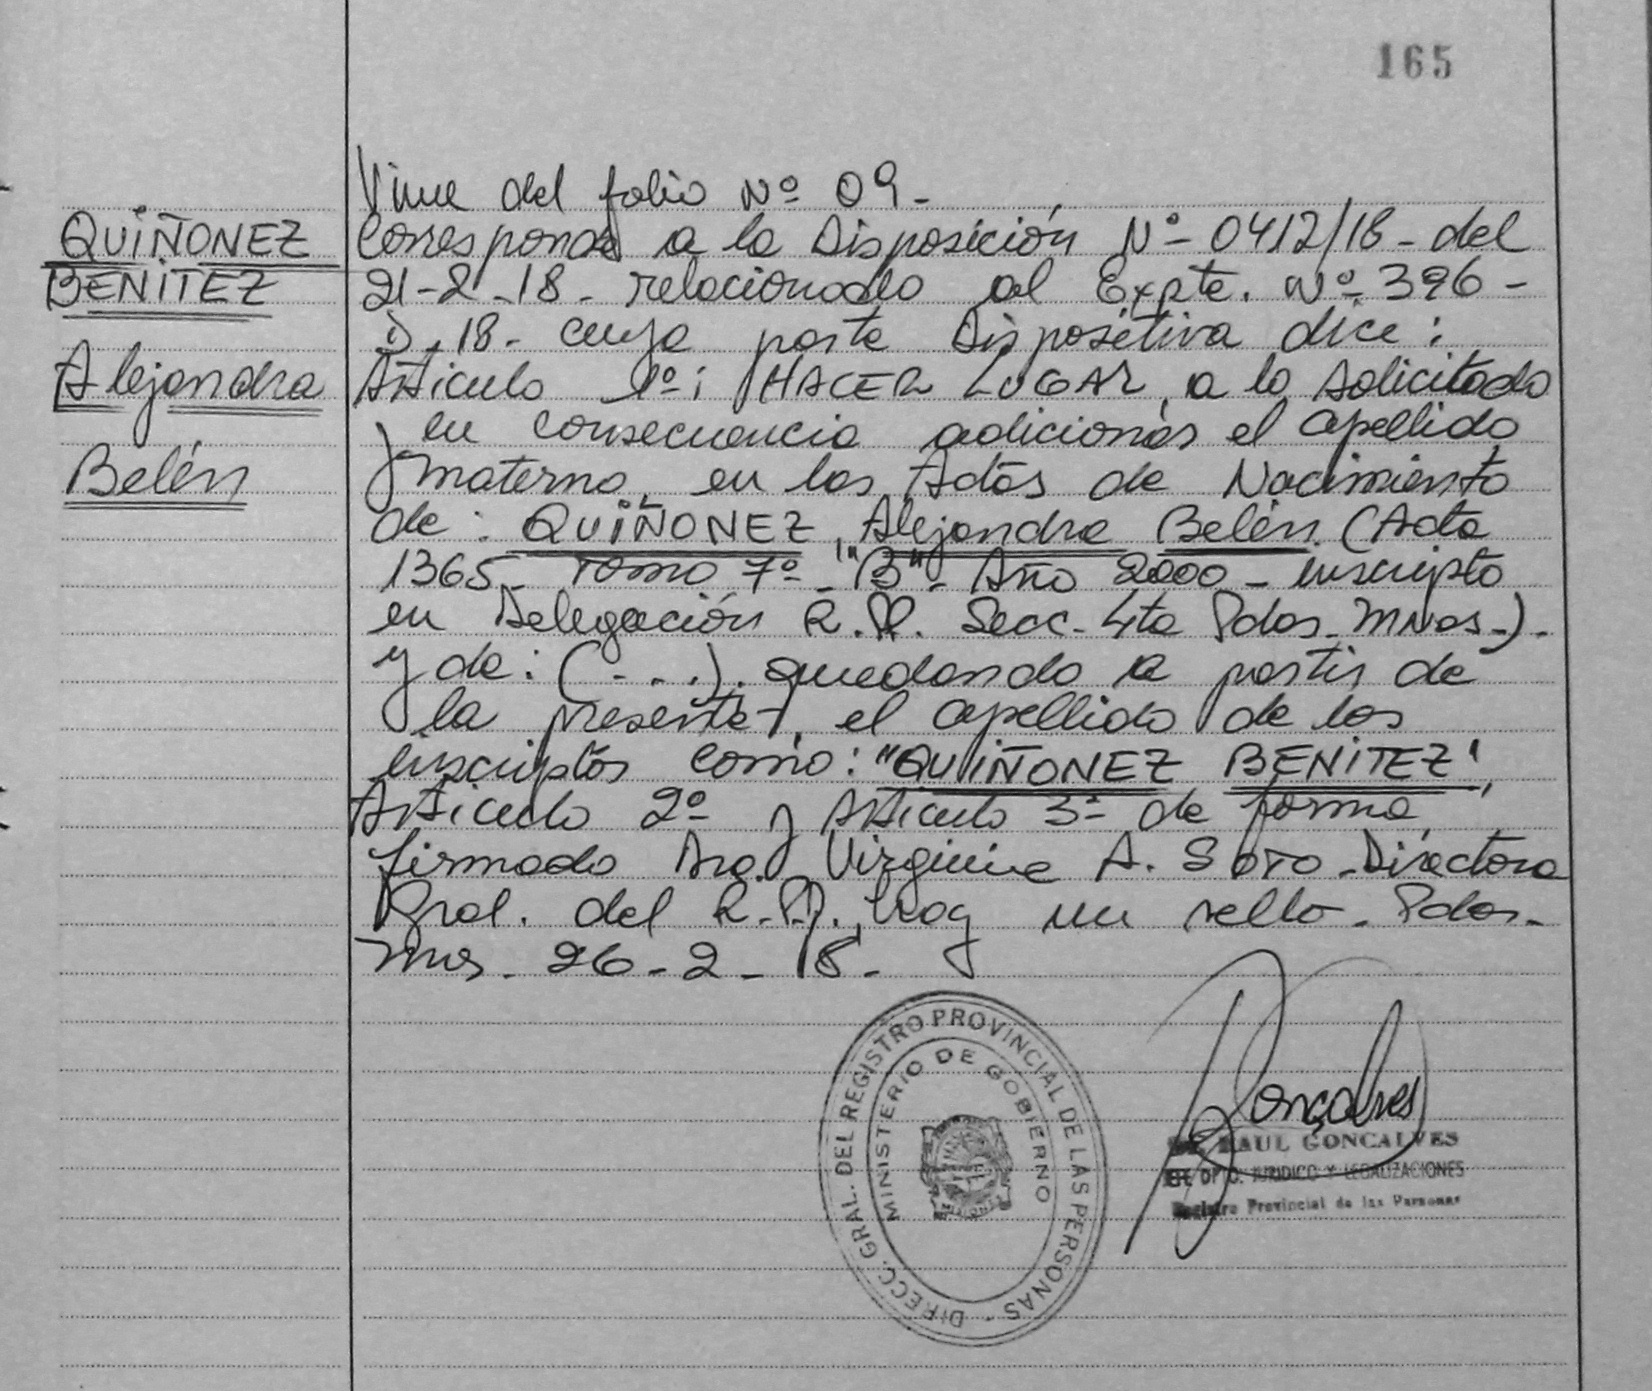 165
QUIÑONEZ
BENITEZ
Alejandra
Belén
Viene del folio Nº 09-
Corresponde a la Disposición Nº 0412/18- del
21-2-18- relacionado al Expte. Nº 396-
18- cuya parte Dispositiva dice:
Artículo 1º: HACER LUGAR, a lo solicitado
y en consecuencia adicionar el apellido
materno, en las Actas de Nacimiento
de: QUIÑONEZ, Alejandra Belén (Acta
1365- Tomo 7º-"B"- Año 2000- inscripta
en Delegación R.P. Secc. 4ta Pdas. Mnes-)-
y de: (- - -). quedando a partir de
la presente, el apellido de los
inscriptos como: "QUIÑONEZ BENITEZ",
Artículo 2º y Artículo 3º de forma,
firmado Virginia A. SOTO- Directora
Gral. del R.P. Hay un sello- Pdas-
Mnes- 26-2-18-
DIRECC. GRAL. DEL REGISTRO PROVINCIAL DE LAS PERSONAS -
MINISTERIO DE GOBIERNO
Goncalves
RAUL GONCALVES
DPTO. JURIDICO Y LEGALIZACIONES
Registro Provincial de las Personas